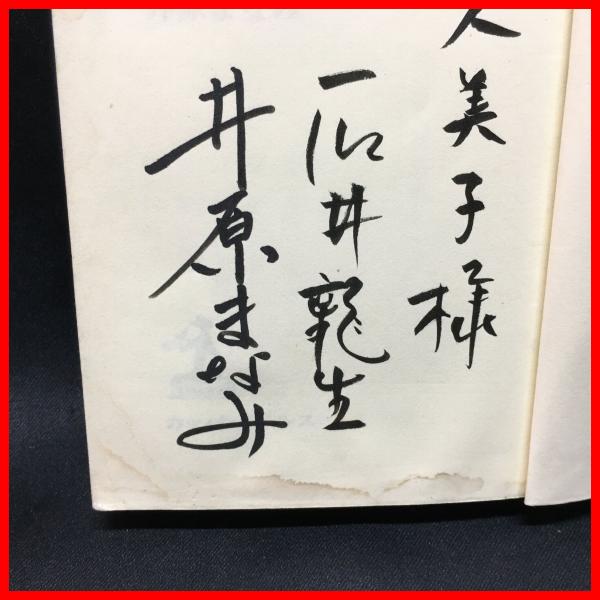 久美子様
石井龍生
井原まなみ